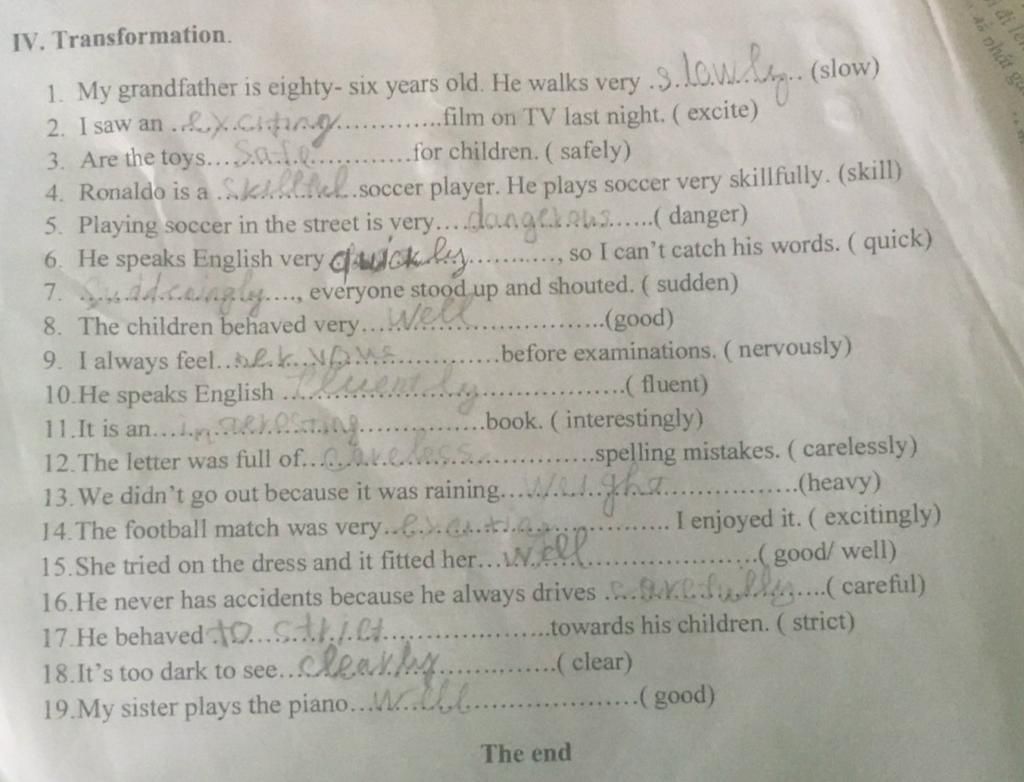 IV. Transformation.
1. My grandfather is eighty- six years old. He walks very .slowly.. (slow)
2. I saw an ..exciting..............film on TV last night. ( excite)
3. Are the toys....Safe.............for children. ( safely)
4. Ronaldo is a ..Skillful..soccer player. He plays soccer very skillfully. (skill)
5. Playing soccer in the street is very....dangerous......( danger)
6. He speaks English very quickly..........., so I can't catch his words. ( quick)
7. Suddeingly...., everyone stood up and shouted. ( sudden)
8. The children behaved very...Well....................(good)
9. I always feel..nervous...............before examinations. ( nervously)
10.He speaks English ..fluently.....................( fluent)
11.It is an....................book. ( interestingly)
12.The letter was full of...careless...................spelling mistakes. ( carelessly)
13.We didn't go out because it was raining...weight...................(heavy)
14.The football match was very..................... I enjoyed it. ( excitingly)
15.She tried on the dress and it fitted her...well.........................( good/ well)
16.He never has accidents because he always drives ..carefully....( careful)
17.He behaved to strict.....................towards his children. ( strict)
18.It's too dark to see..clearly...............( clear)
19.My sister plays the piano...Well.......................( good)
The end